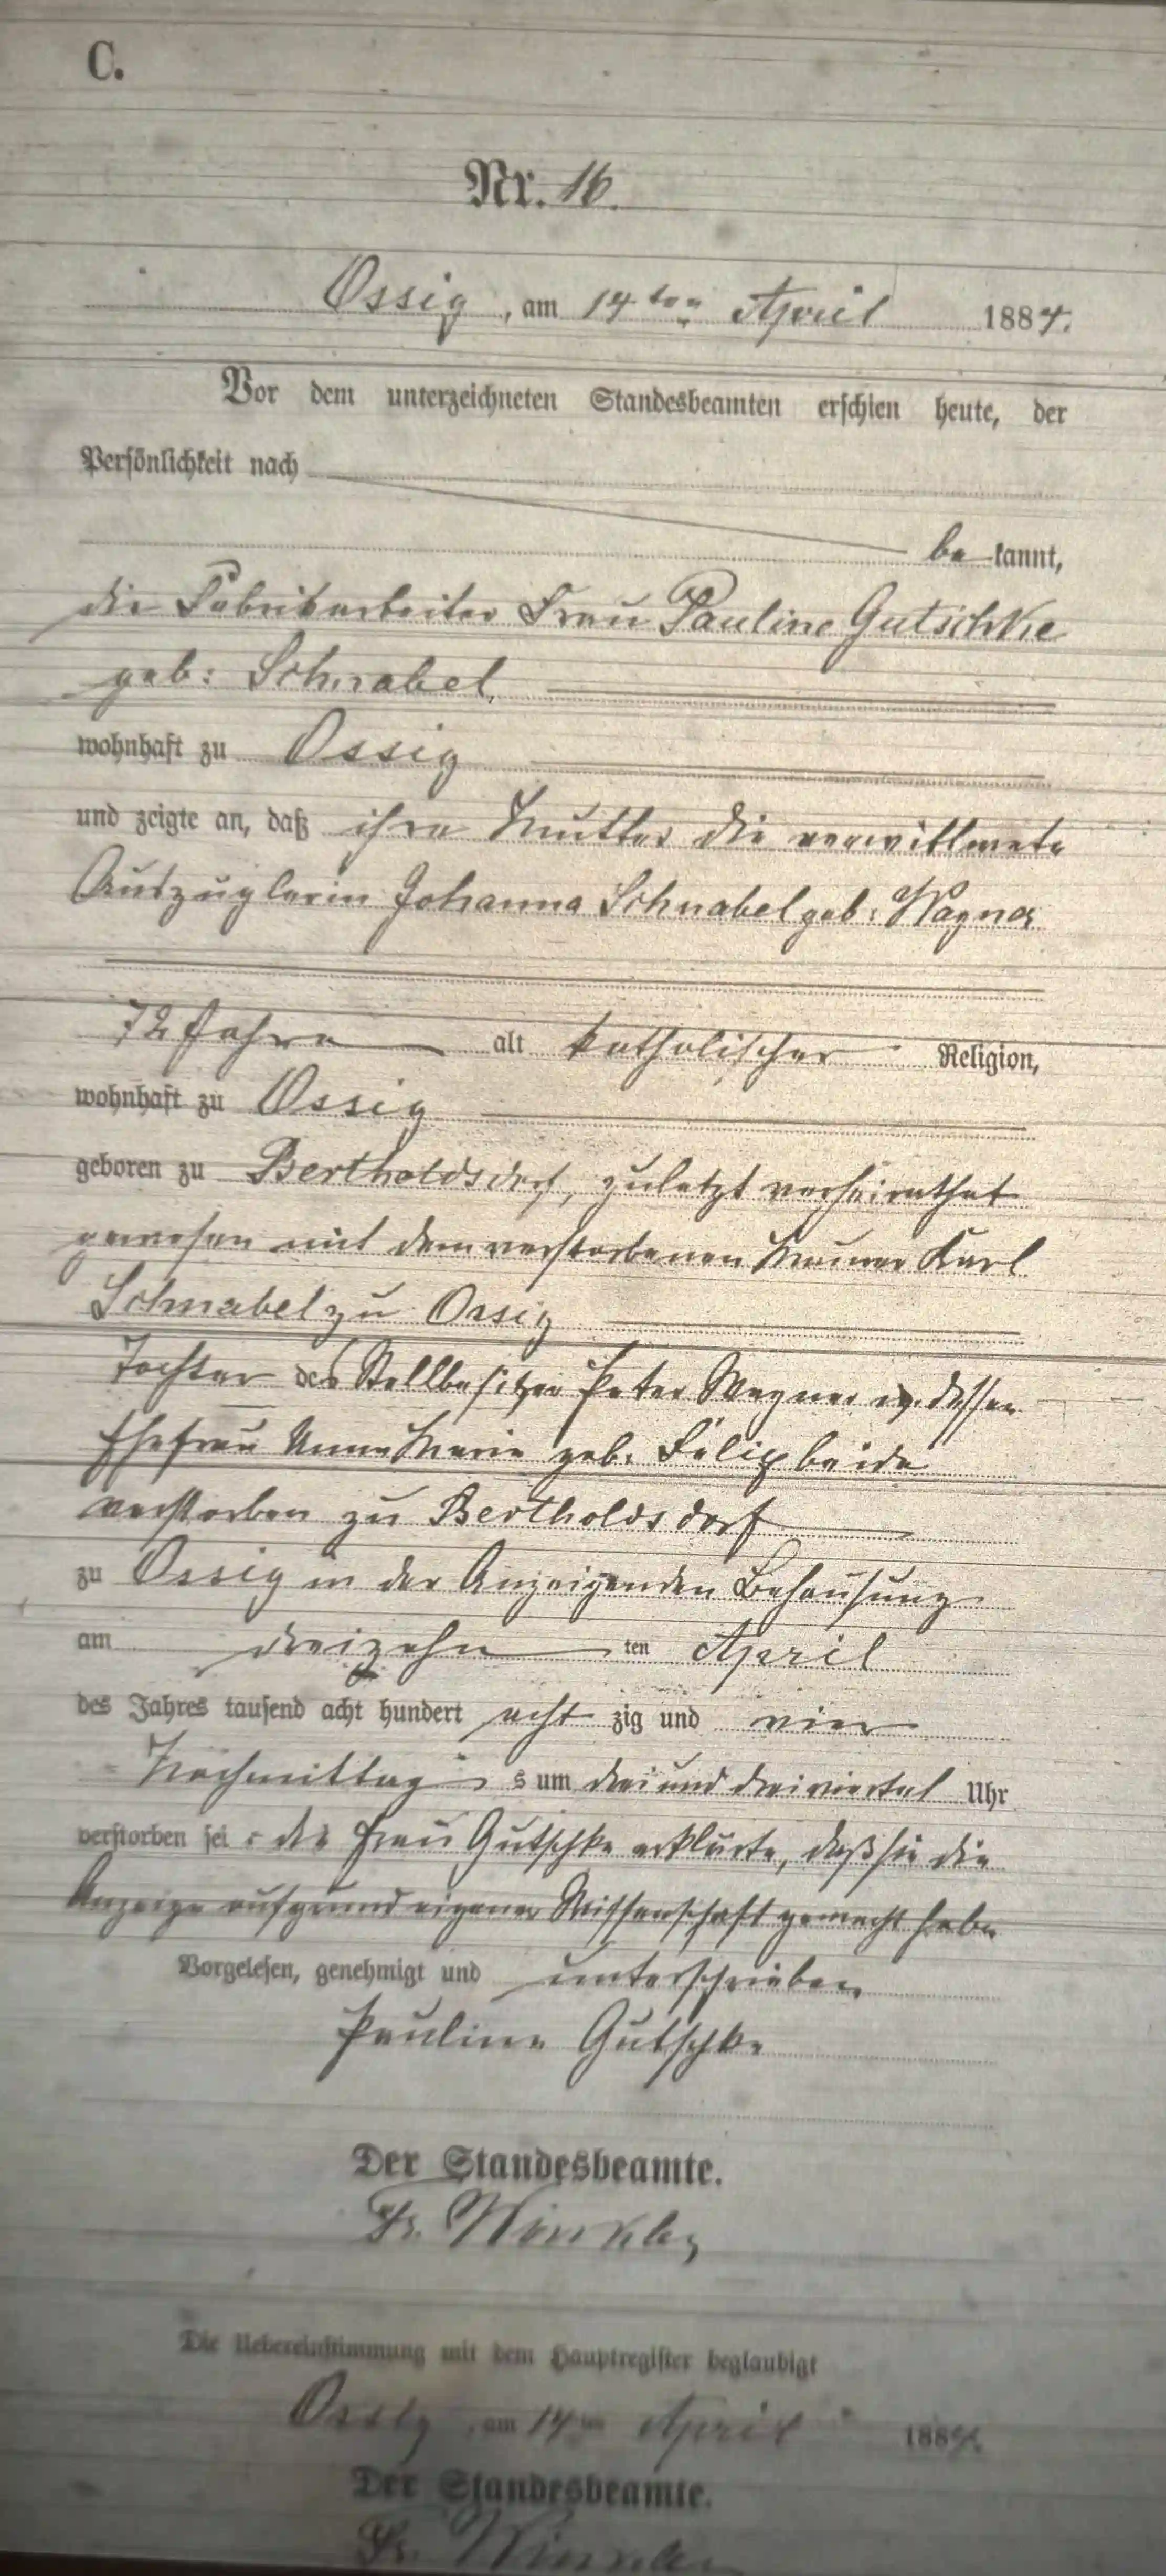 C.
Nr. 16.
Ossig, am 14ten April 1884.
Vor dem unterzeichneten Standesbeamten erschien heute, der
Persönlichkeit nach
be kannt,
die Fabrikarbeiter Frau Pauline Gutschke
geb: Schnabel,
wohnhaft zu Ossig
und zeigte an, daß ihre Mutter die verwittwete
Auszüglerin Johanna Schnabel geb: Wagner
72 Jahre alt katholischer Religion,
wohnhaft zu Ossig
geboren zu Bertholdsdorf, zuletzt verheirathet
gewesen mit dem verstorbenen Maurer Karl
Schnabel zu Ossig
Tochter des Stellbesitzer Peter Wagner u. dessen
Ehefrau Anna Marie geb. Felix beide
verstorben zu Bertholdsdorf
zu Ossig in der Anzeigenden Behausung
am dreizehn ten April
des Jahres tausend acht hundert acht zig und vier
Nachmittag s um drei und dreiviertel Uhr
verstorben sei : die Frau Gutschke erklärte, daß sie die
Anzeige aufgrund eigener Wissenschaft gemacht habe
Vorgelesen, genehmigt und unterschrieben
Pauline Gutschke
Der Standesbeamte.
Fr. Winkler
Die Uebereinstimmung mit dem Hauptregister beglaubigt
Ossig, am 14ten April 1884.
Der Standesbeamte.
Fr. Winkler